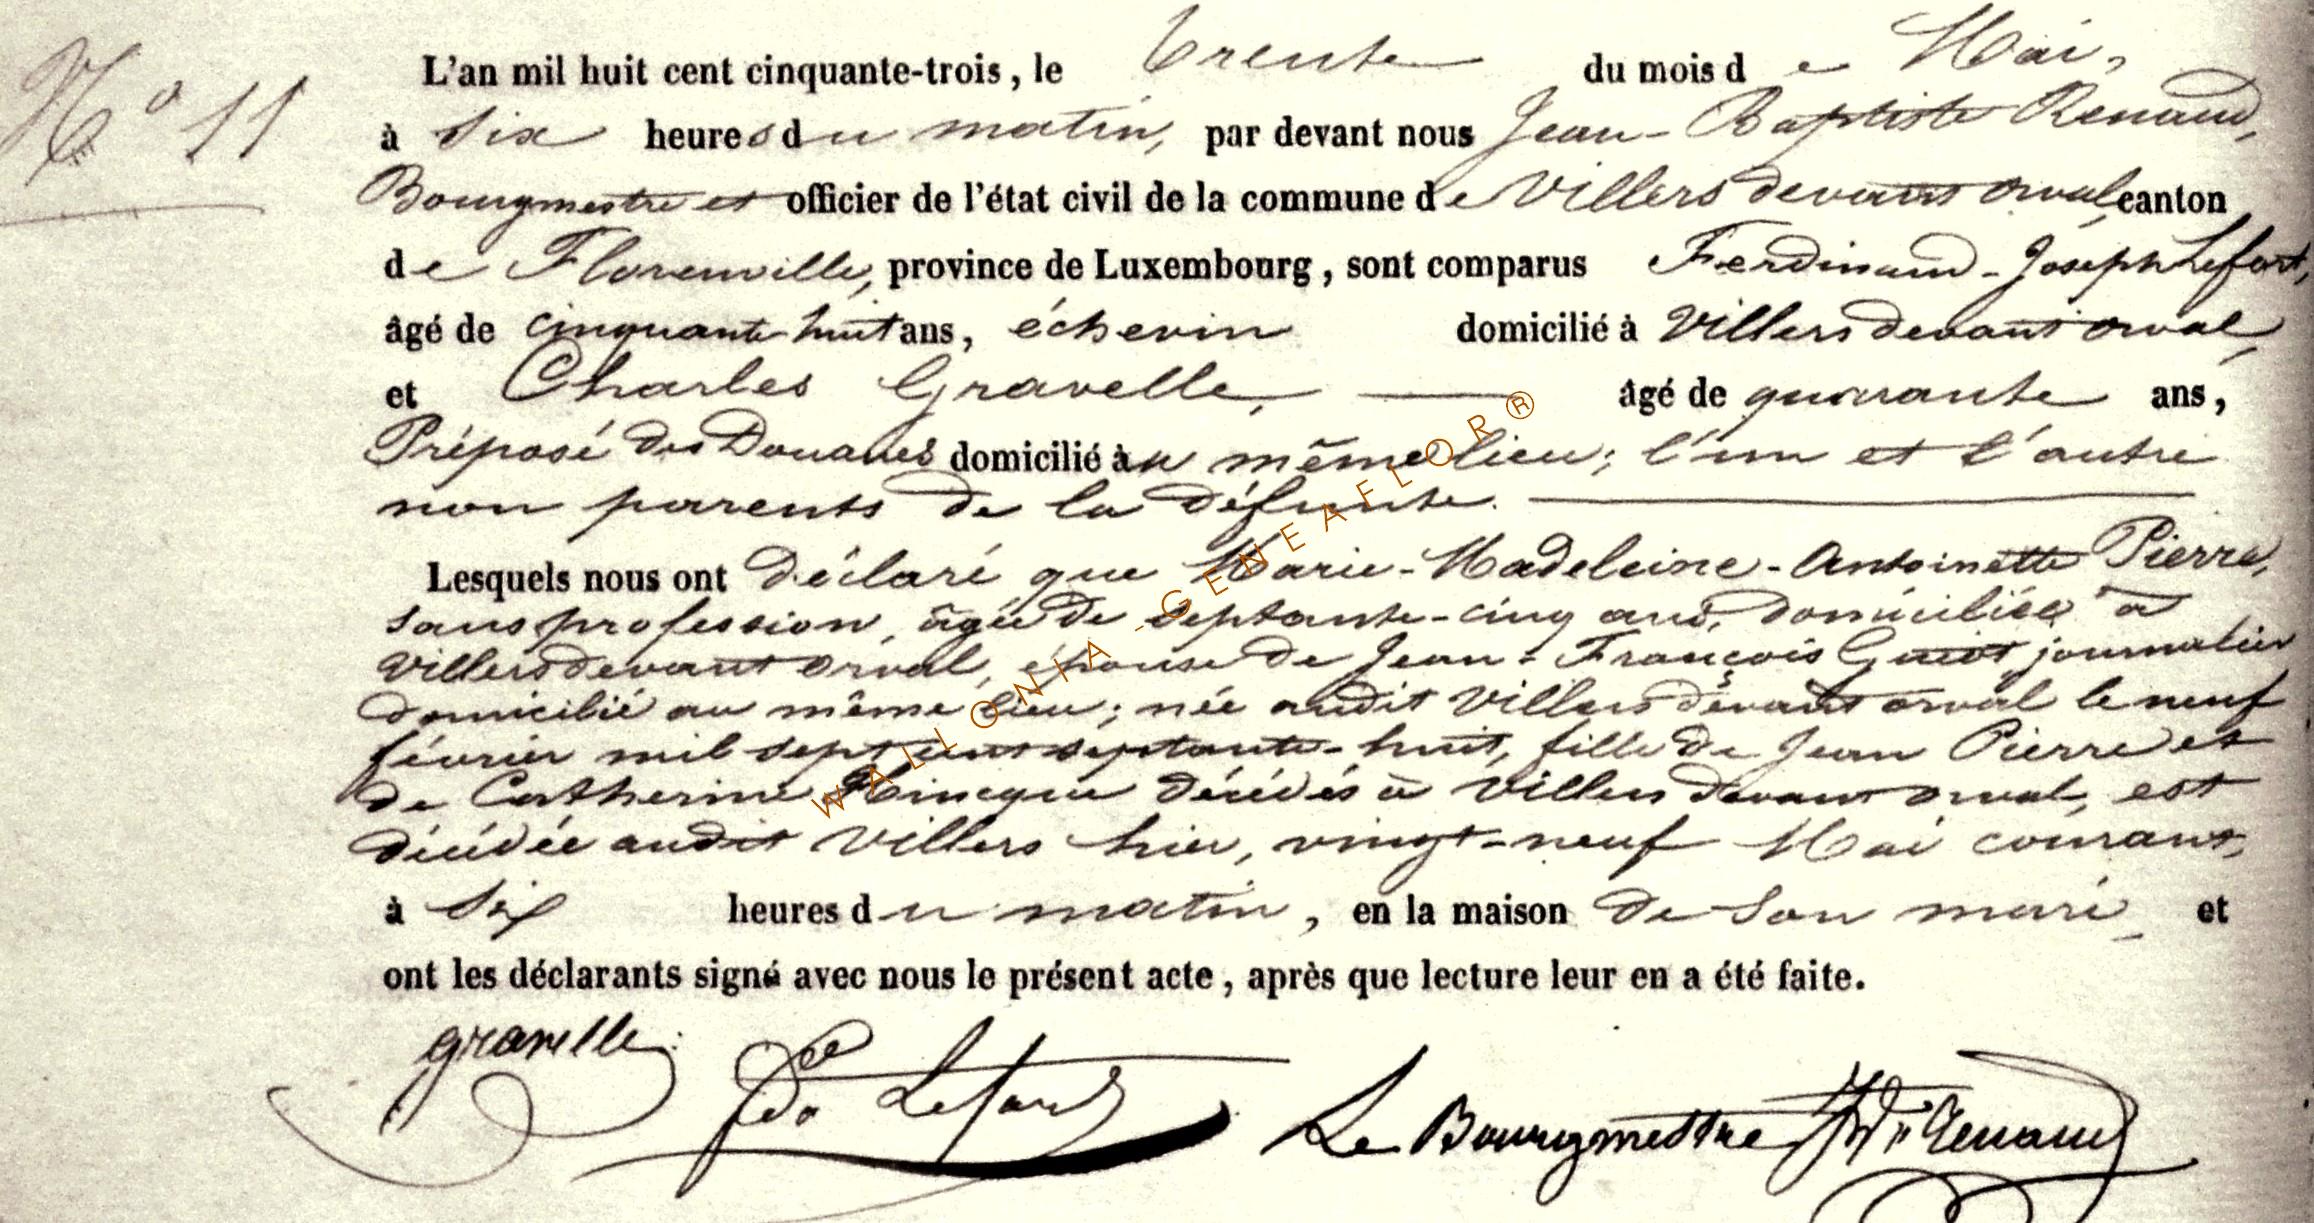 N° 11
L'an mil huit cent cinquante-trois, le trente du mois de Mai,
à six heures du matin, par devant nous Jean-Baptiste Renaud,
Bourgmestre et officier de l'état civil de la commune de Villers devant orval, canton
de Florenville, province de Luxembourg, sont comparus Ferdinand-Joseph Lefort,
âgé de cinquante-huit ans, échevin domicilié à Villers devant orval,
et Charles Gravelle, âgé de quarante ans,
Préposé des Douanes domicilié au même lieu; l'un et l'autre
non parents de la défunte.
Lesquels nous ont déclaré que Marie-Madeleine-Antoinette Pierre,
sans profession, âgée de septante-cinq ans, domiciliée à
Villers devant orval, épouse de Jean-François Guiot journalier
domicilié au même lieu; née audit Villers devant orval le neuf
février mil sept cent septante-huit, fille de Jean Pierre et
de Catherine décédés à Villers devant orval, est
décédée audit Villers hier, vingt-neuf Mai courant,
à six heures du matin, en la maison de son mari, et
ont les déclarants signé avec nous le présent acte, après que lecture leur en a été faite.
gravelle Fd Lefort Le Bourgmestre Renaud
WALLONIA-GENEAFLOR®